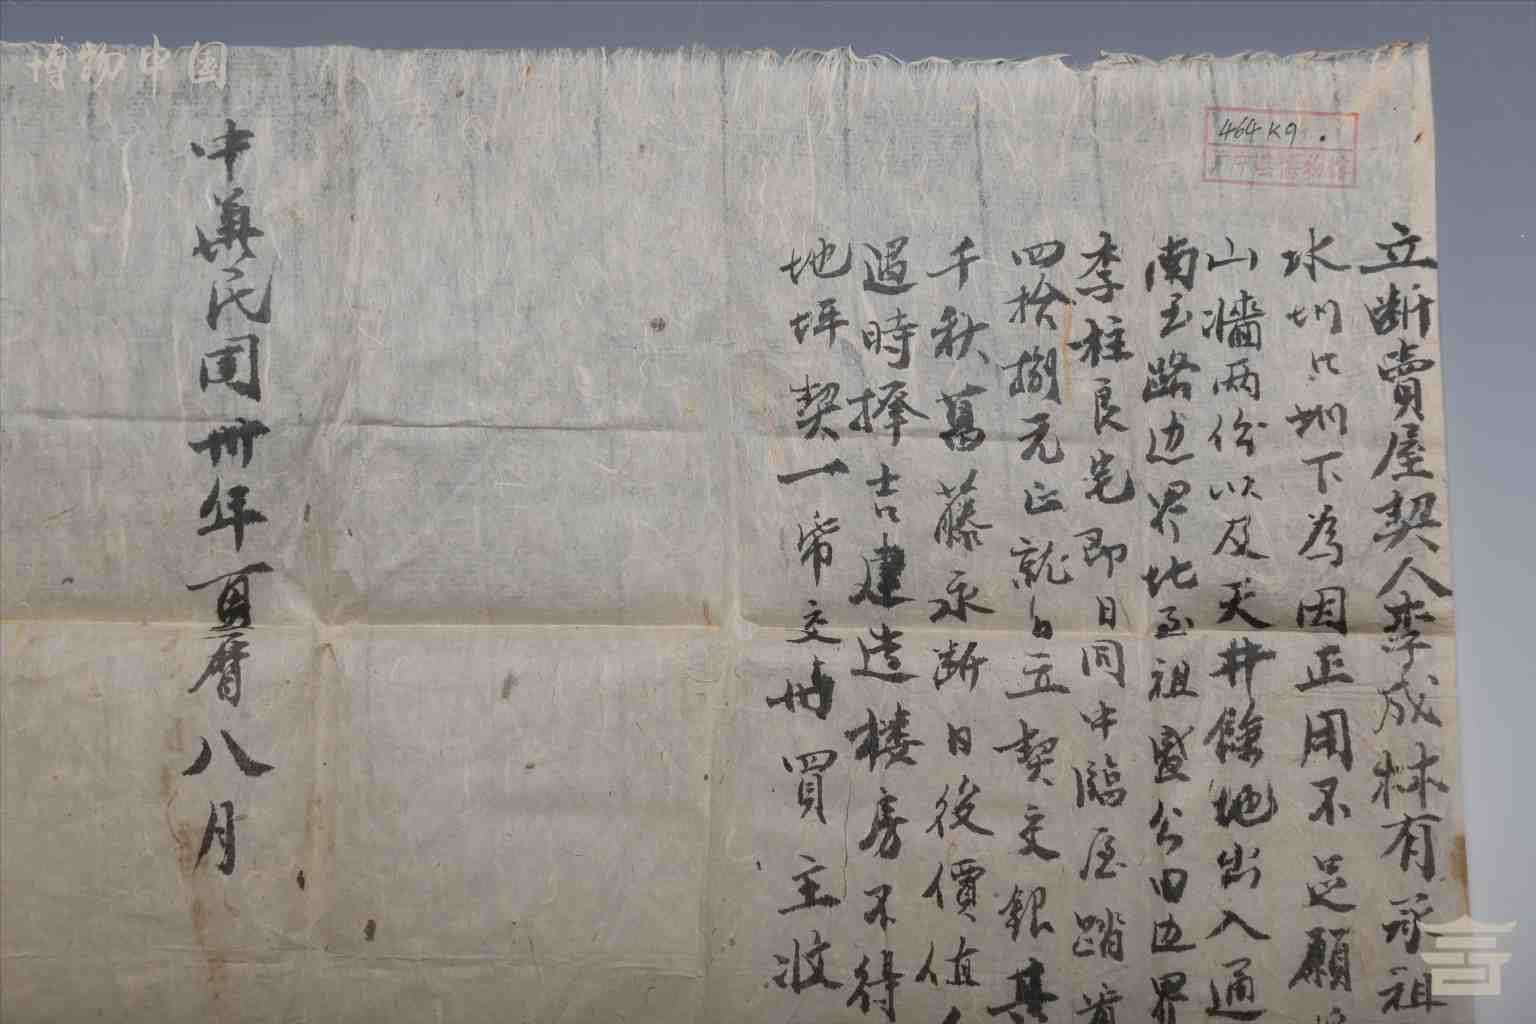 博物中国
464 K9.
立斷賣屋契人李成林有承祖
水圳下為因正用不足願
山墻兩份以及天井餘地出入通
南至路边界北至祖盛公田边界
李柱良宅即日同中臨屋踏
四拾捌元正就日立契交銀其
千秋萬藤永斷日後價值
過時擇吉建造楼房不得
地坪契一帋交付買主收
中華民囯卅年夏曆八月